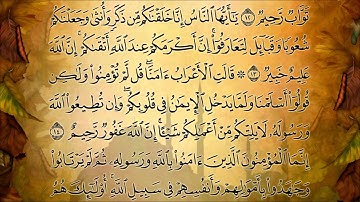 تَوَّابٌ رَّحِيمٌ ١٢ يَٰٓأَيُّهَا ٱلنَّاسُ إِنَّا خَلَقْنَٰكُم مِّن ذَكَرٍ وَأُنثَىٰ وَجَعَلْنَٰكُمْ
شُعُوبًا وَقَبَآئِلَ لِتَعَارَفُوٓا۟ إِنَّ أَكْرَمَكُمْ عِندَ ٱللَّهِ أَتْقَىٰكُمْ إِنَّ ٱللَّهَ
عَلِيمٌ خَبِيرٌ ١٣ ۞ قَالَتِ ٱلْأَعْرَابُ ءَامَنَّا قُل لَّمْ تُؤْمِنُوا۟ وَلَٰكِن
قُولُوٓا۟ أَسْلَمْنَا وَلَمَّا يَدْخُلِ ٱلْإِيمَٰنُ فِى قُلُوبِكُمْ وَإِن تُطِيعُوا۟ ٱللَّهَ
وَرَسُولَهُۥ لَا يَلِتْكُم مِّنْ أَعْمَٰلِكُمْ شَيْـًٔا إِنَّ ٱللَّهَ غَفُورٌ رَّحِيمٌ ١٤
إِنَّمَا ٱلْمُؤْمِنُونَ ٱلَّذِينَ ءَامَنُوا۟ بِٱللَّهِ وَرَسُولِهِۦ ثُمَّ لَمْ يَرْتَابُوا۟
وَجَٰهَدُوا۟ بِأَمْوَٰلِهِمْ وَأَنفُسِهِمْ فِى سَبِيلِ ٱللَّهِ أُو۟لَٰٓئِكَ هُمُ